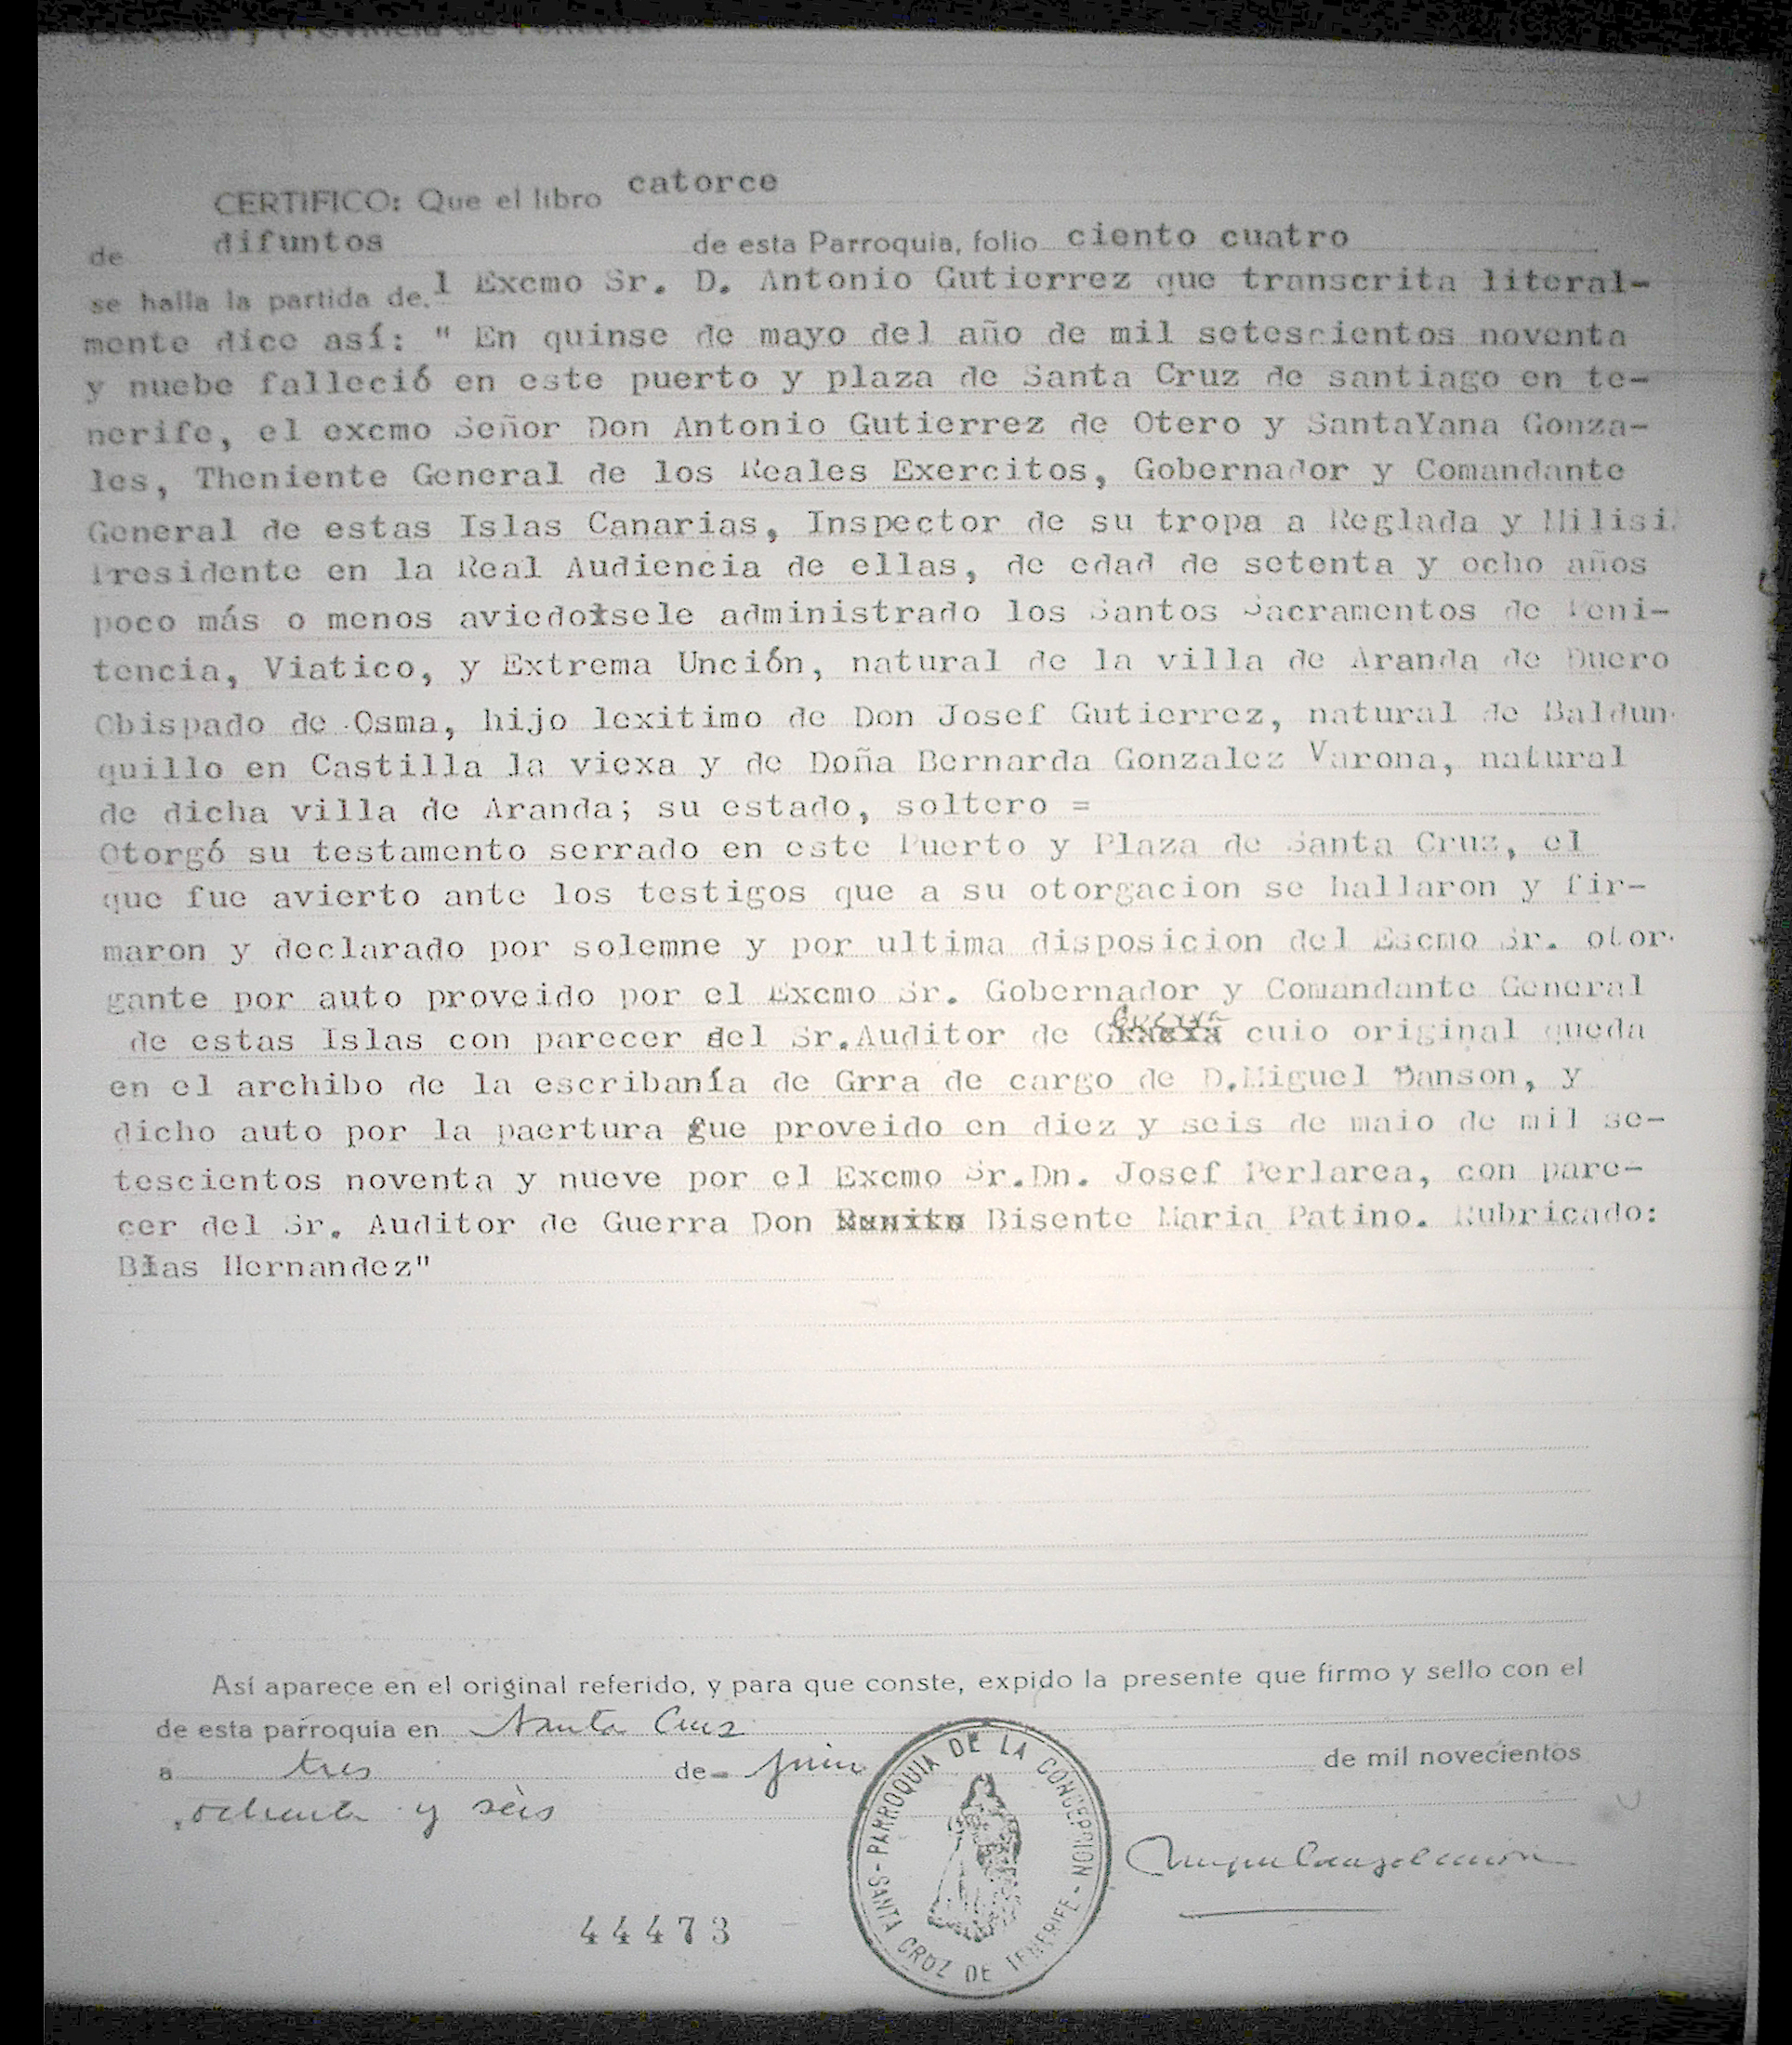 Diocesis y Provincia de Tenerife
CERTIFICO: Que el libro catorce
de difuntos de esta Parroquia, folio ciento cuatro
se halla la partida de.l Excmo Sr. D. Antonio Gutierrez que transcrita literal-
mente dice así: " En quinse de mayo del año de mil setescientos noventa
y nuebe falleció en este puerto y plaza de Santa Cruz de santiago en te-
nerife, el excmo Señor Don Antonio Gutierrez de Otero y SantaYana Gonza-
les, Theniente General de los Reales Exercitos, Gobernador y Comandante
General de estas Islas Canarias, Inspector de su tropa a Reglada y Milisi
Presidente en la Real Audiencia de ellas, de edad de setenta y ocho años
poco más o menos aviedosele administrado los Santos Sacramentos de Peni-
tencia, Viatico, y Extrema Unción, natural de la villa de Aranda de Duero
Obispado de Osma, hijo lexitimo de Don Josef Gutierrez, natural de Baldun-
quillo en Castilla la viexa y de Doña Bernarda Gonzalez Varona, natural
de dicha villa de Aranda; su estado, soltero =
Otorgó su testamento serrado en este Puerto y Plaza de Santa Cruz, el
que fue avierto ante los testigos que a su otorgacion se hallaron y fir-
maron y declarado por solemne y por ultima disposicion del Escmo Sr. otor-
gante por auto proveido por el Excmo Sr. Gobernador y Comandante General
de estas Islas con parecer del Sr.Auditor de Guerra cuio original queda
en el archibo de la escribanía de Grra de cargo de D.Miguel Danson, y
dicho auto por la paertura gue proveido en diez y seis de maio de mil se-
tescientos noventa y nueve por el Excmo Sr.Dn. Josef Perlarea, con pare-
cer del Sr. Auditor de Guerra Don Bisente Maria Patino. Rubricado:
Blas Hernandez"
Así aparece en el original referido, y para que conste, expido la presente que firmo y sello con el
de esta parroquia en Santa Cruz
a tres de junio de mil novecientos
ochenta y seis
PARROQUIA DE LA CONCEPCION - SANTA CRUZ DE TENERIFE -
44473